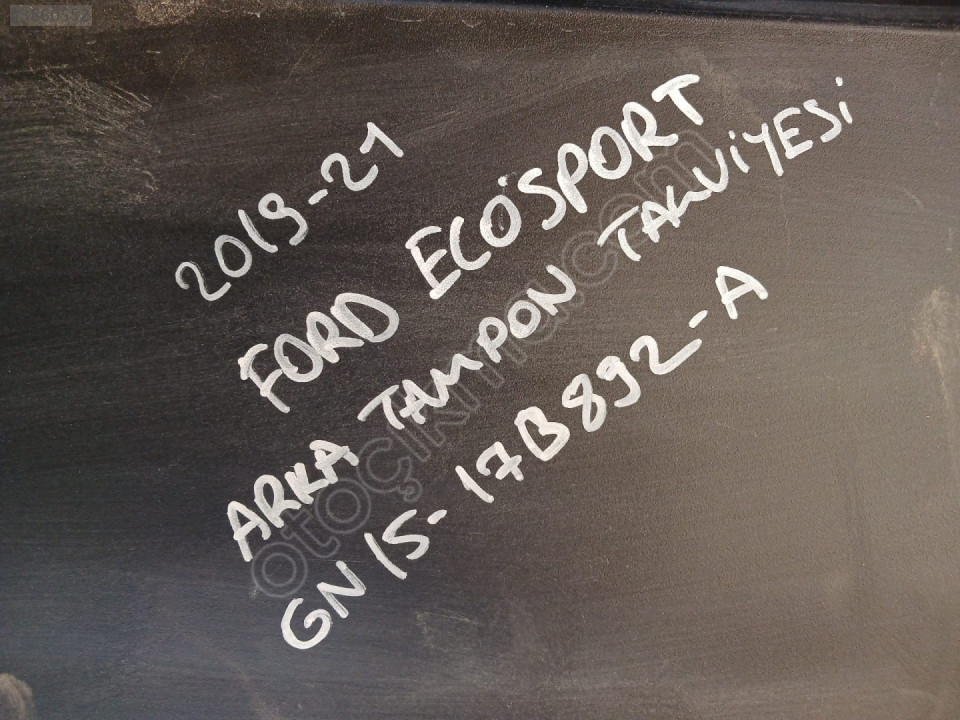 2019-21
FORD ECOSPORT
ARKA TAMPON TAKVİYESİ
GN15-17B892-A
otoçıkma.com